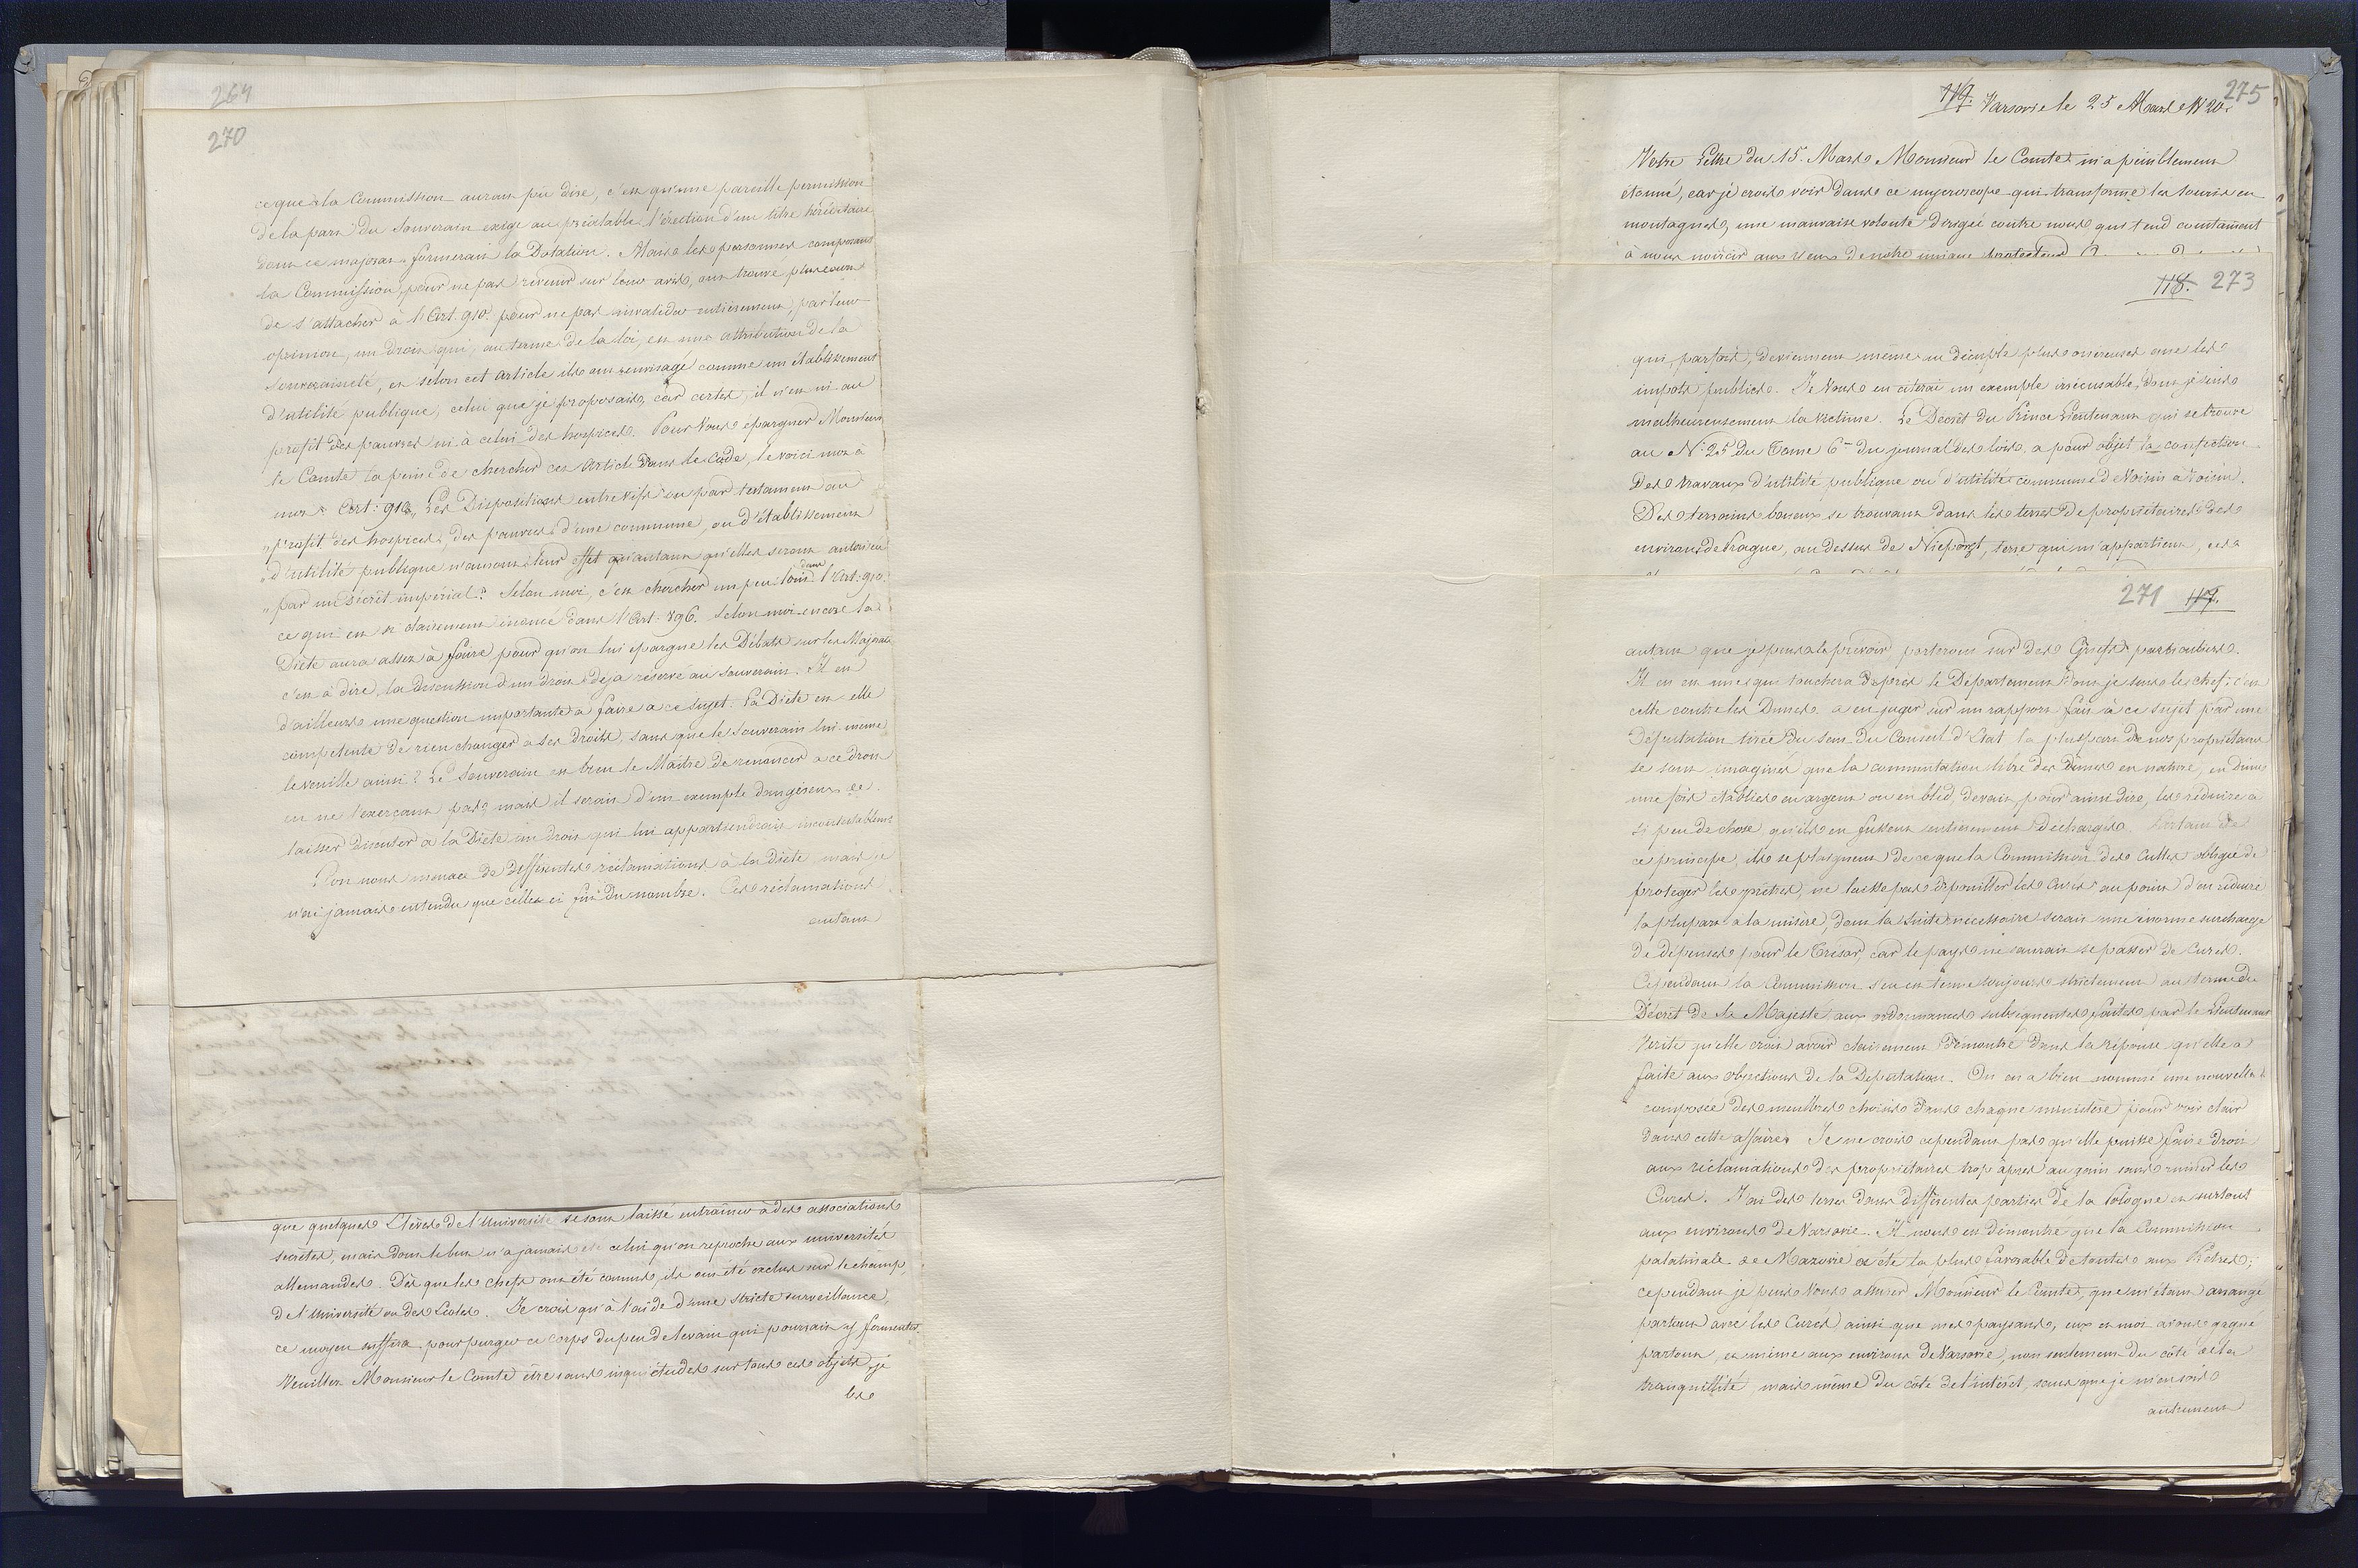 264
270
ce que la Commission aurait pu dire, c'est qu'une pareille permission
de la part du Souverain exige au préalable l'érection d'un titre héréditaire
dont ce majorat formerait la Dotation. Mais les personnes composant
la Commission, pour ne pas revenir sur leur avis, ont trouvé plus
de s'attacher à l'Art. 910. pour ne pas invalider entièrement, par leur
opinion, un droit qui, au terme de la loi, est une attribution de la
Souveraineté, et selon cet article ils ont envisagé comme un établissement
d'utilité publique, celui que je proposais, car certes, il n'est ni au
profit des pauvres ni à celui des hospices. Pour Vous épargner Monsieur
le Comte la peine de chercher cet Article dans le Code, le voici mot à
mot: Art: 910, Les Dispositions entre vifs ou par testament au
„profit des hospices, des pauvres d'une commune, ou d'établissement
„d'utilité publique n'auront leur effet qu'autant qu'elles seront autorisées
„par un décret impérial." Selon moi, c'est chercher un peu loin dans l'Art: 910.
ce qui est si clairement énoncé dans l'Art: 896. Selon moi encore la
Diète aura assez à faire pour qu'on lui épargne les Débats sur les Majorats
c'est à dire, la discussion d'un droit déjà réservé au Souverain. Il est
d'ailleurs une question importante à faire à ce sujet. La Diète est elle
compétente de rien changer à ses droits, sans que le Souverain lui même
le veuille ainsi? Le Souverain est bien le Maître de renoncer à ce droit
en ne l'exerçant pas, mais il serait d'un exemple dangereux de
laisser discuter à la Diète un droit qui lui appartiendrait incontestablement
L'on nous menace de différentes réclamations à la Diète mais je
n'ai jamais entendu que celles ci fut du nombre. Ces réclamations
autant
que quelques Elèves de l'Université se sont laissé entraîner à des associations
secrètes, mais dont le but n'a jamais été celui qu'on reproche aux universités
allemandes. Dès que les chefs ont été connus, ils ont été exclus sur le champ,
de l'Université ou des Ecoles. Je crois qu'à l'aide d'une stricte surveillance,
ce moyen suffira pour purger ce corps du peu de levain qui pourrait y fermenter.
Veuillez Monsieur le Comte être sans inquiétudes sur tous ces objets, je
les
119. Varsovie le 25 Mars 1820.
275
Votre Lettre du 15. Mars Monsieur le Comte m'a péniblement
étonné, car je crois voir dans ce mycroscope qui transforme les souris en
montagnes, une mauvaise volonté dirigée contre nous qui tend constamment
à nous noircir aux yeux de notre unique protecteur
118. 273
qui, parfois, deviennent même au décuple plus onéreuses que les
impôts publics. Je Vous en citerai un exemple irrécusable, dont je suis
malheureusement la victime. Le Décret du Prince Lieutenant qui se trouve
au N: 25 du Tome 6me du journal des lois, a pour objet la confection
des travaux d'utilité publique ou d'utilité commune de Voisin à Voisin.
Des terrains boueux se trouvant dans les terres de propriétaires des
environs de Prague, au dessus de Nieporęt, terre qui m'appartient, ces
271 117.
autant que je peux le prévoir porteront sur des Griefs particuliers.
Il en est une qui touchera de près le Département dont je suis le chef: c'est
celle contre les Dimes. à en juger sur un rapport fait à ce sujet par une
Députation tirée du sein du Conseil d'Etat la plupart de nos propriétaires
se sont imaginés que la commutation libre des Dimes en nature, en dimes
une fois établies en argent ou en bled, devait, pour ainsi dire, les réduire à
si peu de chose, qu'ils en fussent entièrement déchargés. Partant de
ce principe, ils se plaignent de ce que la Commission des Cultes obligée de
protéger les prêtres, ne laisse pas dépouiller les Curés au point d'en réduire
la plupart à la misère, dont la suite nécessaire serait une énorme surcharge
de dépenses pour le Trésor, car le pays ne saurait se passer de Curés.
Cependant la Commission s'en est tenue toujours strictement au terme du
Décret de Sa Majesté, aux ordonnances subséquentes faites par le Lieutenant
Vérité qu'elle croit avoir clairement démontré dans la réponse qu'elle a
faite aux objections de la Députation. On en a bien nommé une nouvelle
composée des membres choisis dans chaque ministère pour voir clair
dans cette affaire. Je ne crois cependant pas qu'elle puisse faire droit
aux réclamations des propriétaires trop âpres au gain sans ruiner les
Curés. J'ai des terres dans différentes parties de la Pologne et surtout
aux environs de Varsovie. Il nous est démontré que la Commission
palatinale de Mazovie a été la plus favorable de toutes aux Prêtres;
cependant je puis Vous assurer Monsieur le Comte, que m'étant arrangé
partout avec les Curés ainsi que mes paysans, eux et moi avons gagné
partout, et même aux environs de Varsovie, non seulement du côté de la
tranquillité mais même du côté de l'intérêt, sans que je m'en sois
autrement